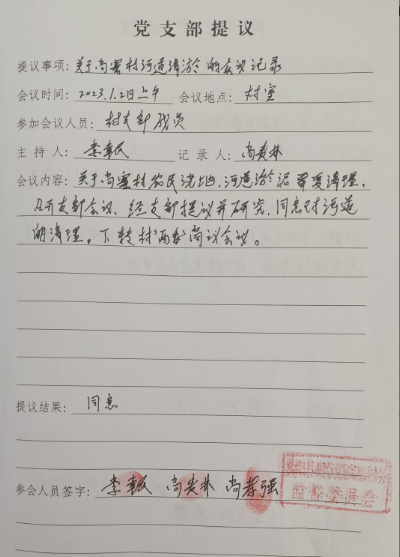 党支部提议
提议事项：关于尚寨村河道清淤的会议记录
会议时间：2023.1.2日上午 会议地点：村室
参加会议人员：村支部成员
主持人：李 记录人：尚贵林
会议内容：关于尚寨村农民浇地，河道淤泥需要清理，
召开支部会议，经支部提议并研究，同意对河道
的清理。下转村“两委”商议会议。
提议结果：同意
参会人员签字：李 尚贵林 尚孝强
监督委员会